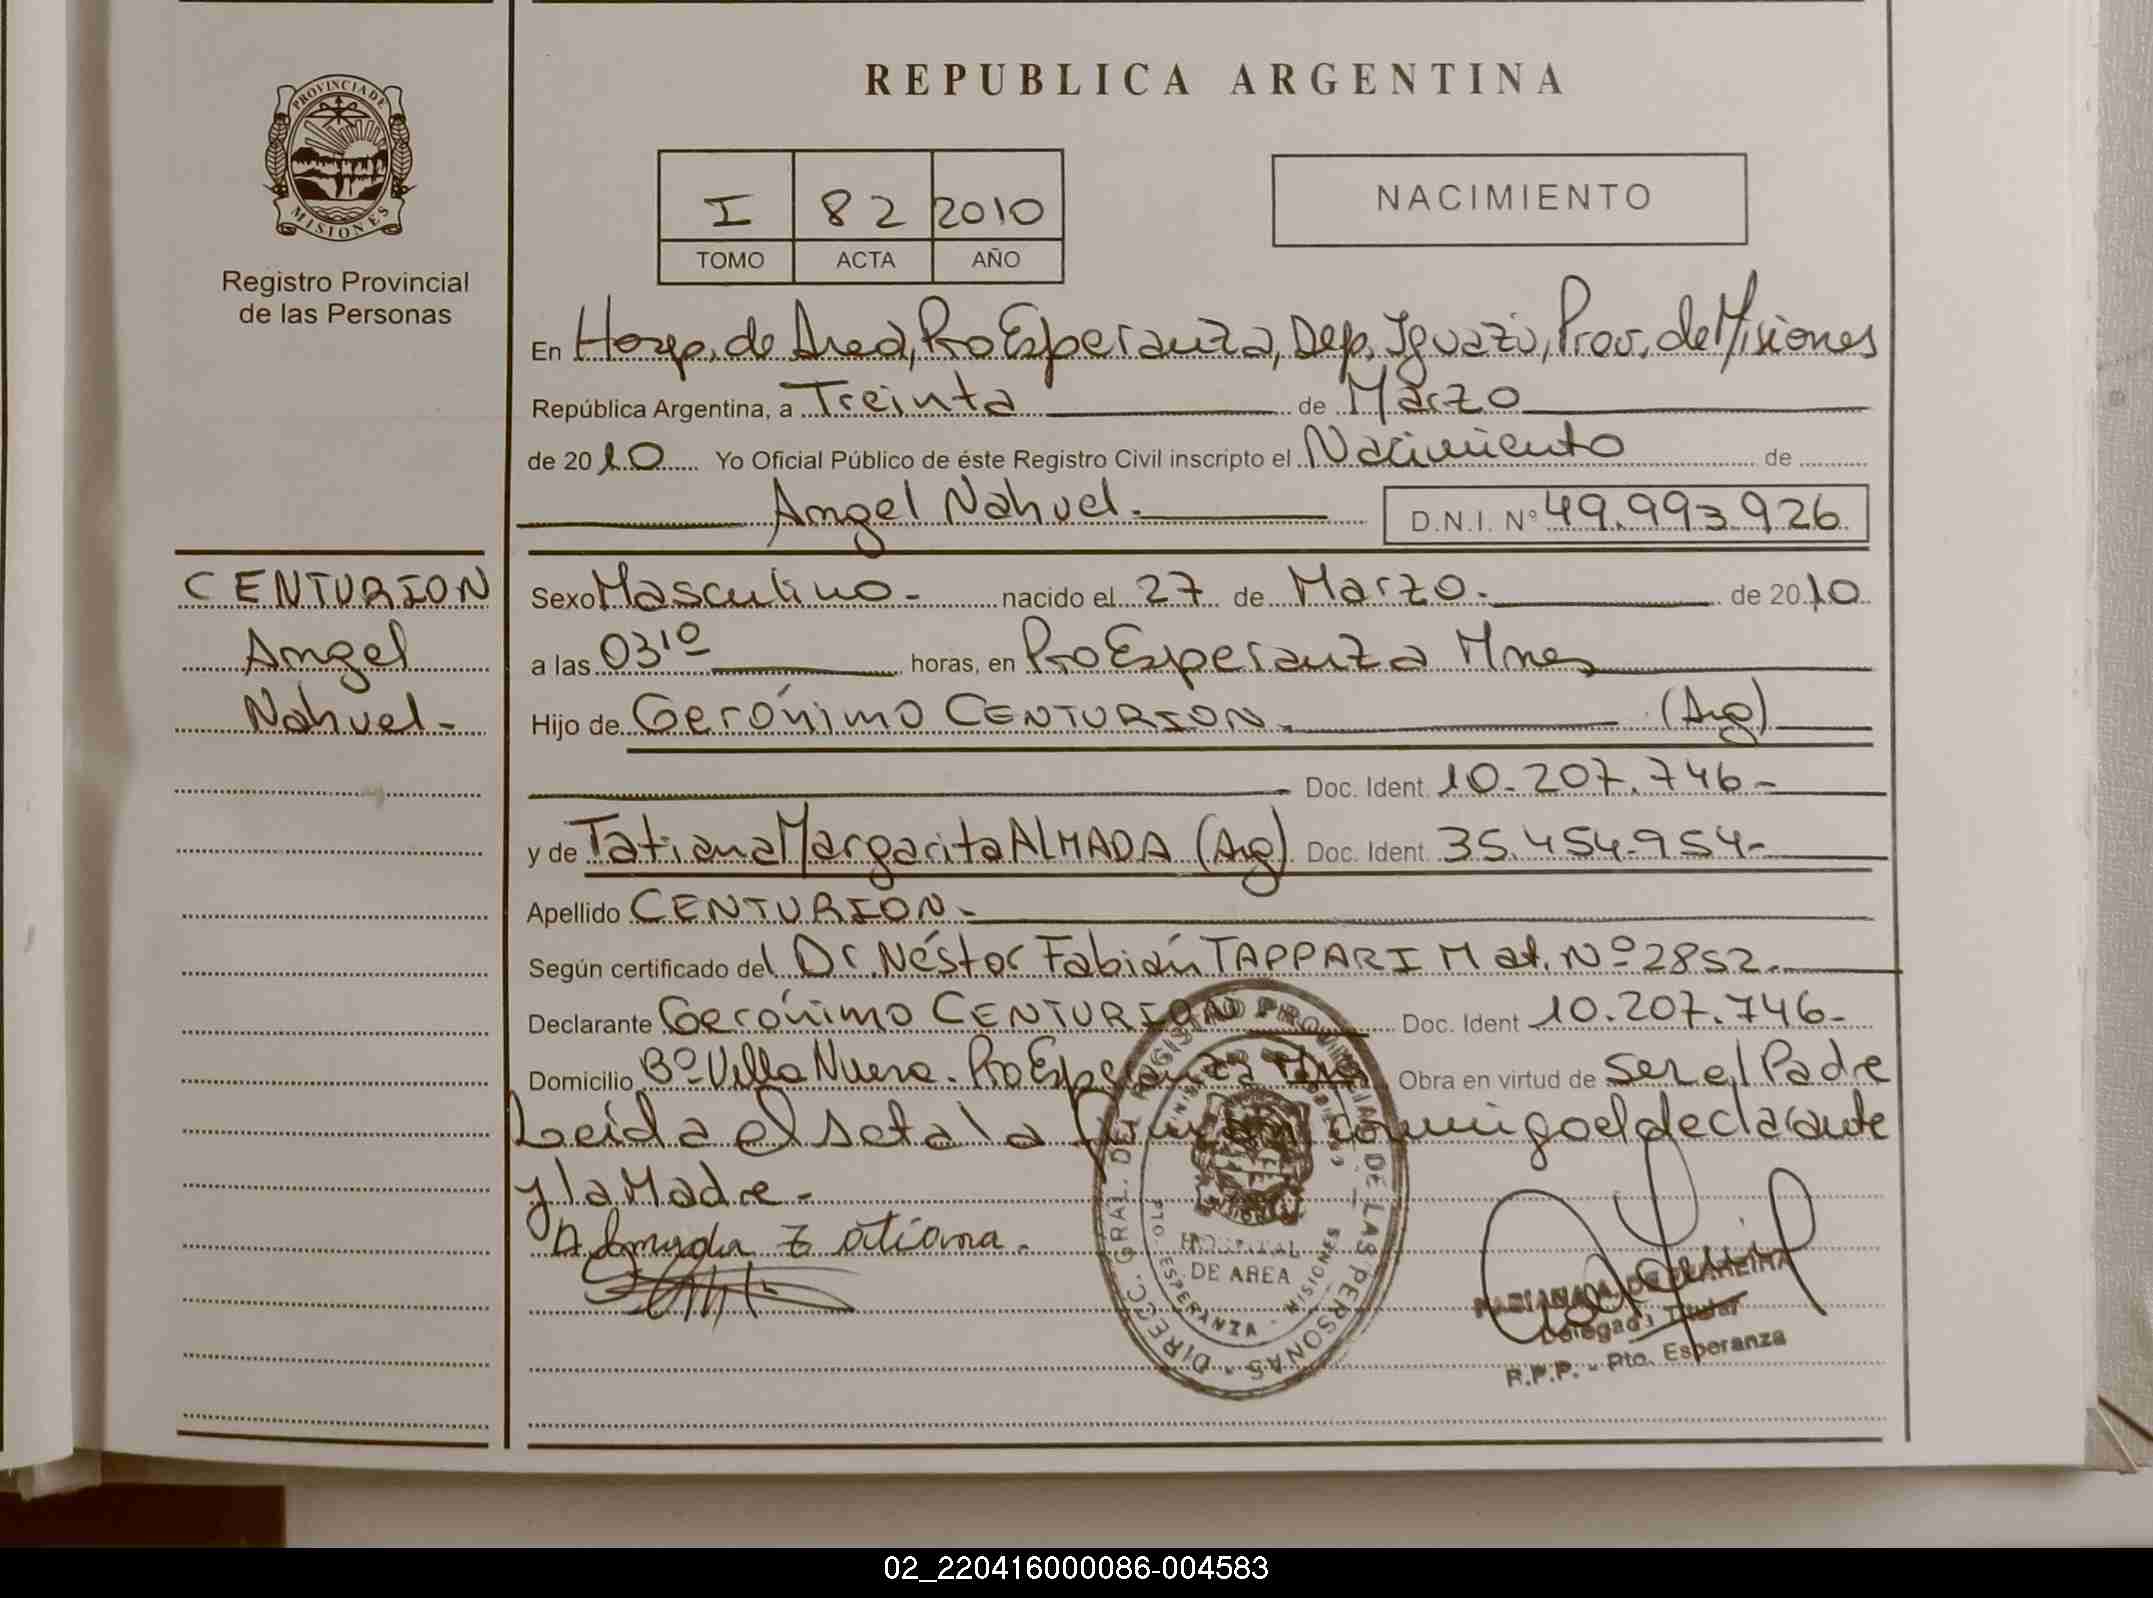 REPUBLICA ARGENTINA
PROVINCIA DE
MISIONES
Registro Provincial
de las Personas
I 82 2010
TOMO ACTA AÑO
NACIMIENTO
En Hosp. de Area, Pto Esperanza, Dep. Iguazú, Prov. de Misiones
República Argentina, a Treinta de Marzo
de 2010 Yo Oficial Público de éste Registro Civil inscripto el Nacimiento de
Angel Nahuel.- D.N.I. Nº 49.993.926
CENTURION
Angel
Nahuel.-
Sexo Masculino.- nacido el 27 de Marzo.- de 2010
a las 03¹⁰ horas, en Pto Esperanza Mnes
Hijo de Gerónimo CENTURION.- (Arg)
Doc. Ident. 10.207.746.-
y de Tatiana Margarita ALMADA (Arg) Doc. Ident. 35.454.954.-
Apellido CENTURION.-
Según certificado del Dr. Néstor Fabián TAPPARI Mat. Nº 2852.-
Declarante Gerónimo CENTURION Doc. Ident 10.207.746.-
Domicilio Bº Villa Nueva. Pto Esperanza Mnes Obra en virtud de ser el Padre
Leída el acta la firman conmigo el declarante
y la Madre.-
Almada Tatiana.
DIRECC. GRAL. DEL REGISTRO PROVINCIAL DE LAS PERSONAS
HOSPITAL
DE AREA
PTO ESPERANZA - MISIONES
Delegada Titular
R.P.P. - Pto. Esperanza
02_220416000086-004583